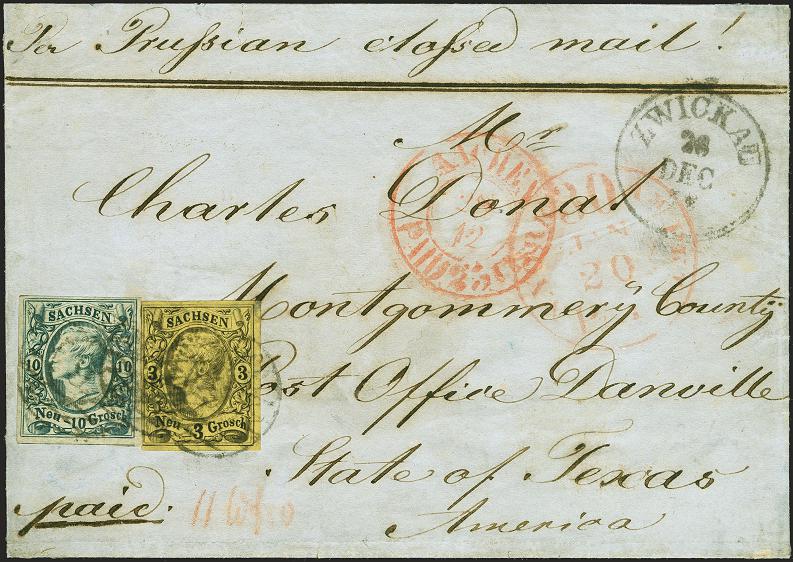 Per Prußian cloßed mail!
ZWICKAU
26
DEC
Mr
Charles Donat
AACHEN
12
PAID 25 C
20
Montgommery County
SACHSEN
10 10
Neu-10 Grosch
SACHSEN
3 3
Neu 3 Grosch
Post Office Danville
State of Texas
paid.
America